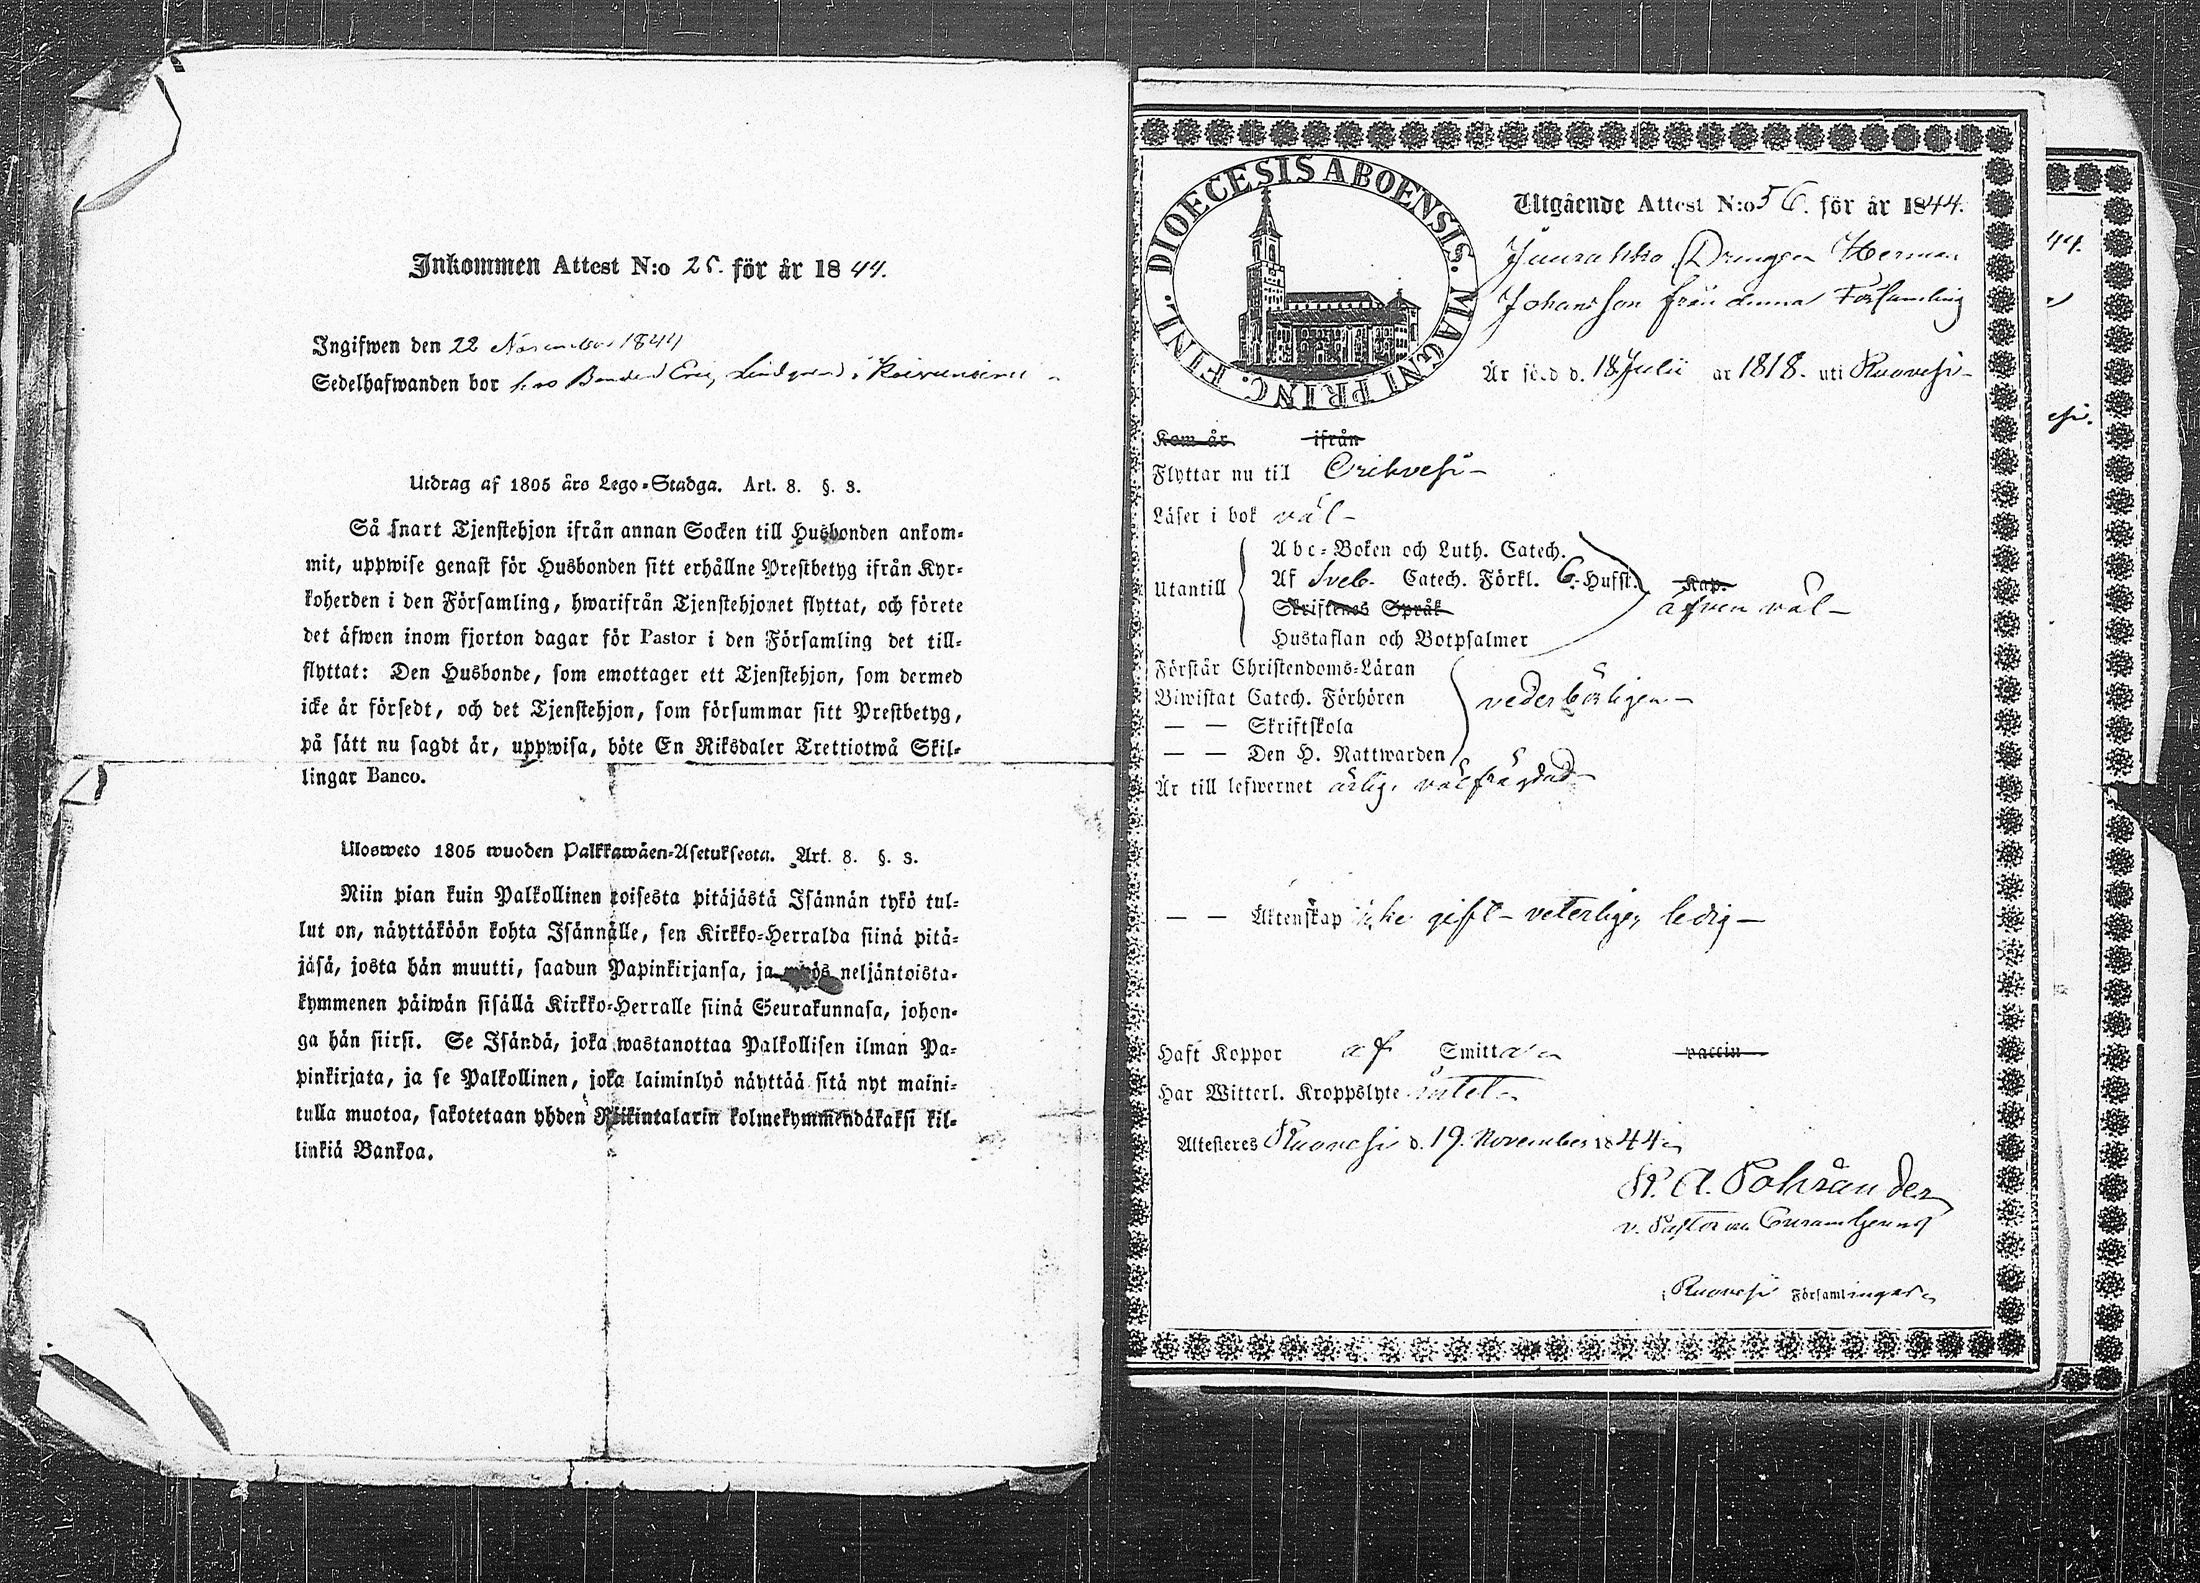 Inkommen Attest N:o 25. för år 1844.
Ingifwen den 22 November 1844
Sedelhafwanden bor hos Bonden Eric Lindqvist i
Utdrag af 1805 års Lego-Stadga. Art. 8. §. 3.
Så snart Tjenstehjon ifrån annan Socken till Husbonden ankom-
mit, uppwise genast för Husbonden sitt erhållne Prestbetyg ifrån Kyr-
koherden i den Församling, hwarifrån Tjenstehjonet flyttat, och förete
det äfwen inom fjorton dagar för Pastor i den Församling det till-
flyttat: Den Husbonde, som emottager ett Tjenstehjon, som dermed
icke är försedt, och det Tjenstehjon, som försummar sitt Prestbetyg,
på sätt nu sagdt är, uppwisa, böte En Riksdaler Trettiotwå Skil-
lingar Banco.
Ulosweto 1805 wuoden Palkkawäen-Asetuksesta. Art. 8. §. 3.
Niin pian kuin Palkollinen toisesta pitäjästä Isännän tykö tul-
lut on, näyttäköön kohta Isännälle, sen Kirkko-Herralda siinä pitä-
jäsä, josta hän muutti, saadun Papinkirjansa, ja myös neljäntoista-
kymmenen päiwän sisällä Kirkko-Herralle siinä Seurakunnasa, johon-
ga hän siirsi. Se Isändä, joka wastanottaa Palkollisen ilman Pa-
pinkirjata, ja se Palkollinen, joka laiminlyö näyttää sitä nyt maini-
tulla muotoa, sakotetaan yhden Riikintalarin kolmekymmendäkaksi kil-
linkiä Bankoa.
DIOECESIS ABOENSIS. MAGNI PRINC. FINL.
Utgående Attest N:o 56. för år 1844.
Drängen Herman
Johansson från denna Församling
Är född d. 18 Julii år 1818. uti Ruovesi
Kom år ifrån
Flyttar nu till Orihvesi
Läser i bok väl
Utantill
Abc-Boken och Luth. Catech.
Af Sveb. Catech. Förkl. 6. Hufst. Kap.
Skriftenes Språk äfven väl
Hustaflan och Botpsalmer
Förstår Christendoms-Läran
Biwistat Catech. Förhören vederbörligen
— — Skriftskola
— — Den H. Nattwarden
Är till lefwernet ärlig, välfrägdad
— — Äktenskap icke gift – veterligen ledig
Haft Koppor af Smittan vaccin
Har Witterl. Kroppslyte intet
Attesteres Ruovesi d. 19. November 1844
K. A. Polviander
v. Pastor
i Ruovesi Församlingar
44.